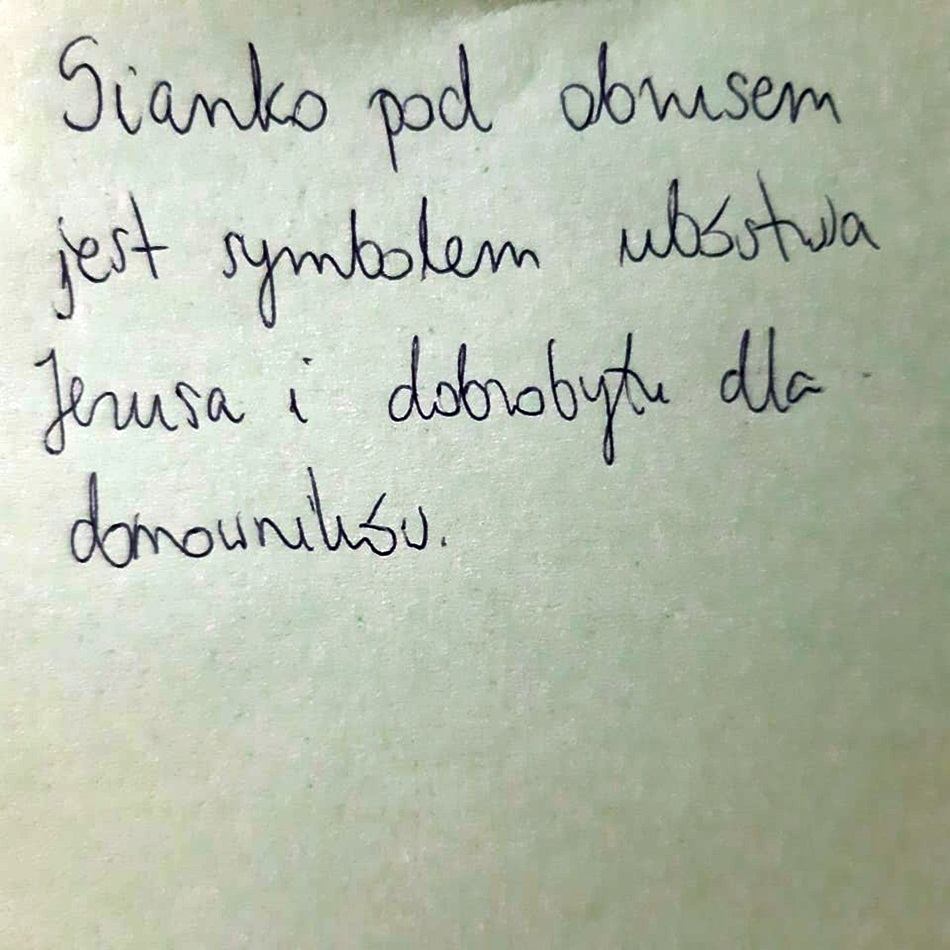 Sianko pod obrusem
jest symbolem ubóstwa
Jezusa i dobrobytu dla
domowników.